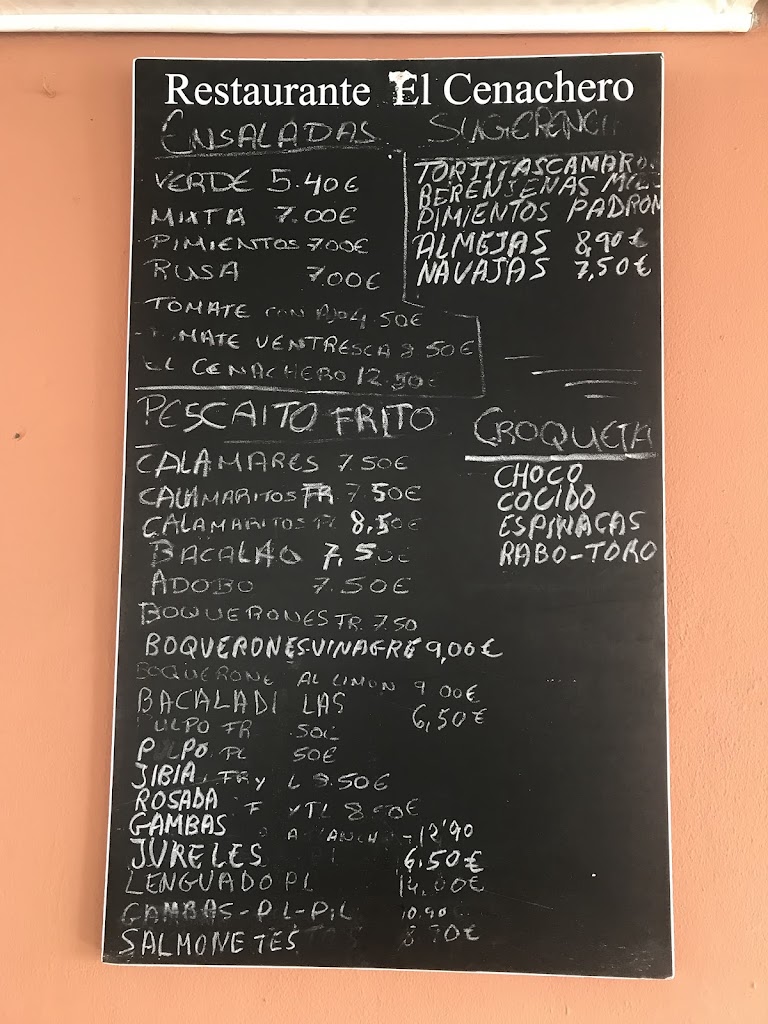 Restaurante El Cenachero
ENSALADAS
VERDE 5.40€
MIXTA 7.00€
PIMIENTOS 7.00€
RUSA 7.00€
TOMATE CON AJO 4.50€
MATE VENTRESCA 8 50€
EL CENACHERO 12.50€
SUGERENCI
TORTITASCAMARO
BERENJENAS MIE
PIMIENTOS PADRON
ALMEJAS 8,90€
NAVAJAS 7,50€
PESCAITO FRITO
CALAMARES 7.50€
CALAMARITOS FR 7.50€
CALAMARITOS PL 8,50€
BACALAO 7,50€
ADOBO 7.50€
BOQUERONES FR. 7.50
BOQUERONESVINAGRE 9,00€
BOQUERONE AL LIMON 9 00€
BACALADI LAS 6,50€
PULPO FR 50€
P LPO PL 50€
JIBIA FR Y L 8.50€
ROSADA F Y TL 8 €
GAMBAS A PLANCHA -12'90
JURELES 6.50€
LENGUADO PL 14.00€
GAMBAS-PIL-PIL 10.90
SALMONETES 8 90€
CROQUETA
CHOCO
COCIDO
ESPINACAS
RABO-TORO